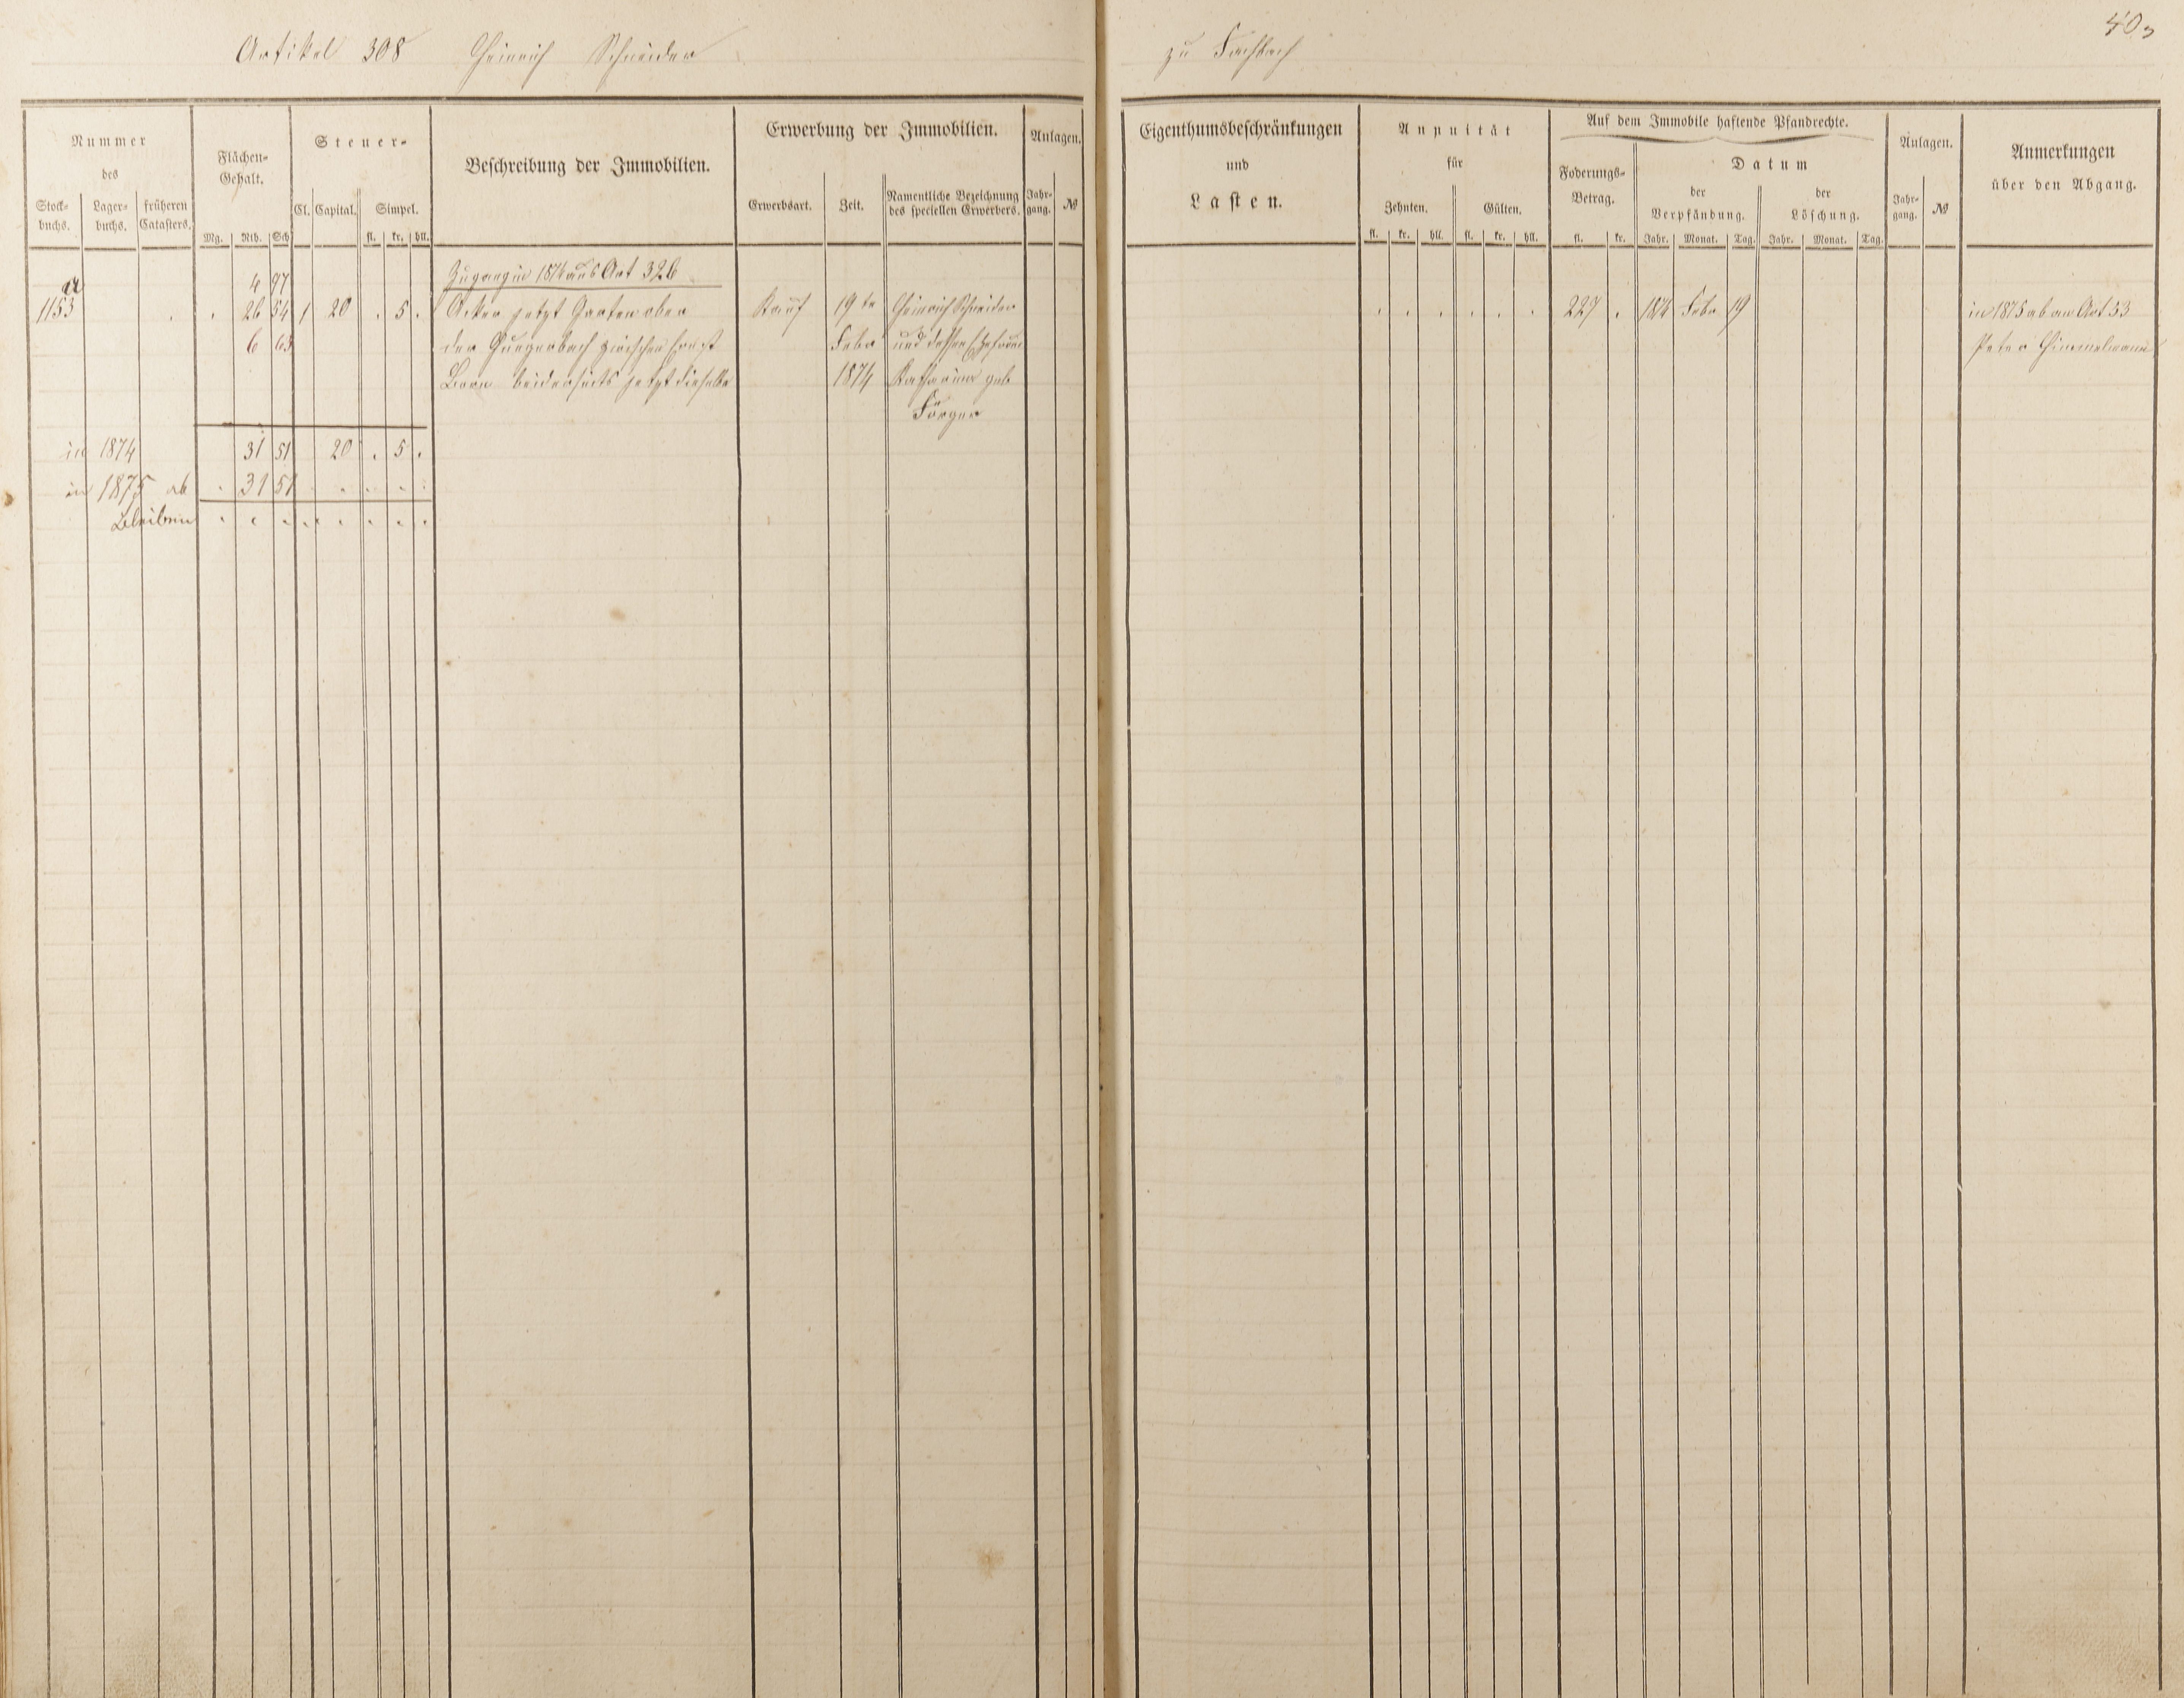 Artikel 308 Heinrich Schneider
zu Fachbach
403
Nummer
des
Stock-
buchs.
Lager-
buchs.
früheren
Catasters.
Flächen-
Gehalt.
Mg. Rth. Sch
Steuer-
Cl. Capital. Simpel.
fl. kr. hll.
Beschreibung der Immobilien.
Erwerbung der Immobilien.
Erwerbsart. Zeit.
Namentliche Bezeichnung
des speciellen Erwerbers.
Anlagen.
Jahr-
gang. №
Eigenthumsbeschränkungen
und
Lasten.
Annuität
für
Zehnten. Gülten.
fl. kr. hll. fl. kr. hll.
Auf dem Immobile haftende Pfandrechte.
Foderungs-
Betrag.
fl. kr.
Datum
der
Verpfändung.
der
Löschung.
Jahr. Monat. Tag. Jahr. Monat. Tag.
Anlagen.
Jahr-
gang. №
Anmerkungen
über den Abgang.
Zugang in 1874 aus Art 326
a 4 97
1153 . . 26 54 1 20 . 5 . Acker jetzt Garten oben Kauf 19te Heinrich Schneider . . . . . . 227 . 1874 Febr 19 in 1875 ab an Art 53
6 63 der zwischen Febr und dessen Ehefrau Peter Himmelmann
Born beiderseits jetzt dieselbe 1874 Katharina geb
Förger
in 1874 31 51 20 . 5 .
in 1875 ab . 31 51 . . . .
Bleiben . . . . . . . .